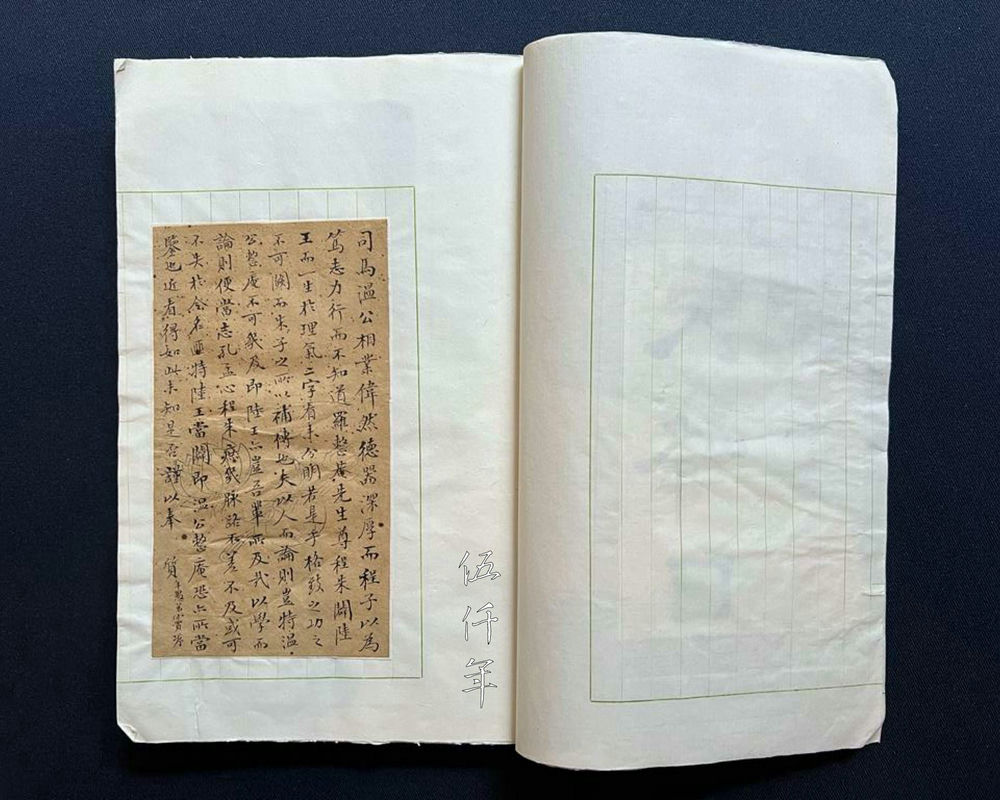 司馬溫公相業偉然德器深厚而程子以為
篤志力行而不知道羅整庵先生尊程朱闢陸
王而一生於理氣二字看未分明若是乎格致之功之
不可闕而朱子之所以補傳也夫以人而論則豈特溫
公整庵不可幾及即陸王亦豈吾輩所及哉以學而
論則便當志孔孟心程朱庶幾脈路不差不及或可
不失於令名匪特陸王當闢即溫公整庵恐亦所當
鑒也近看得如此未知是否謹以奉
質
伍仟年